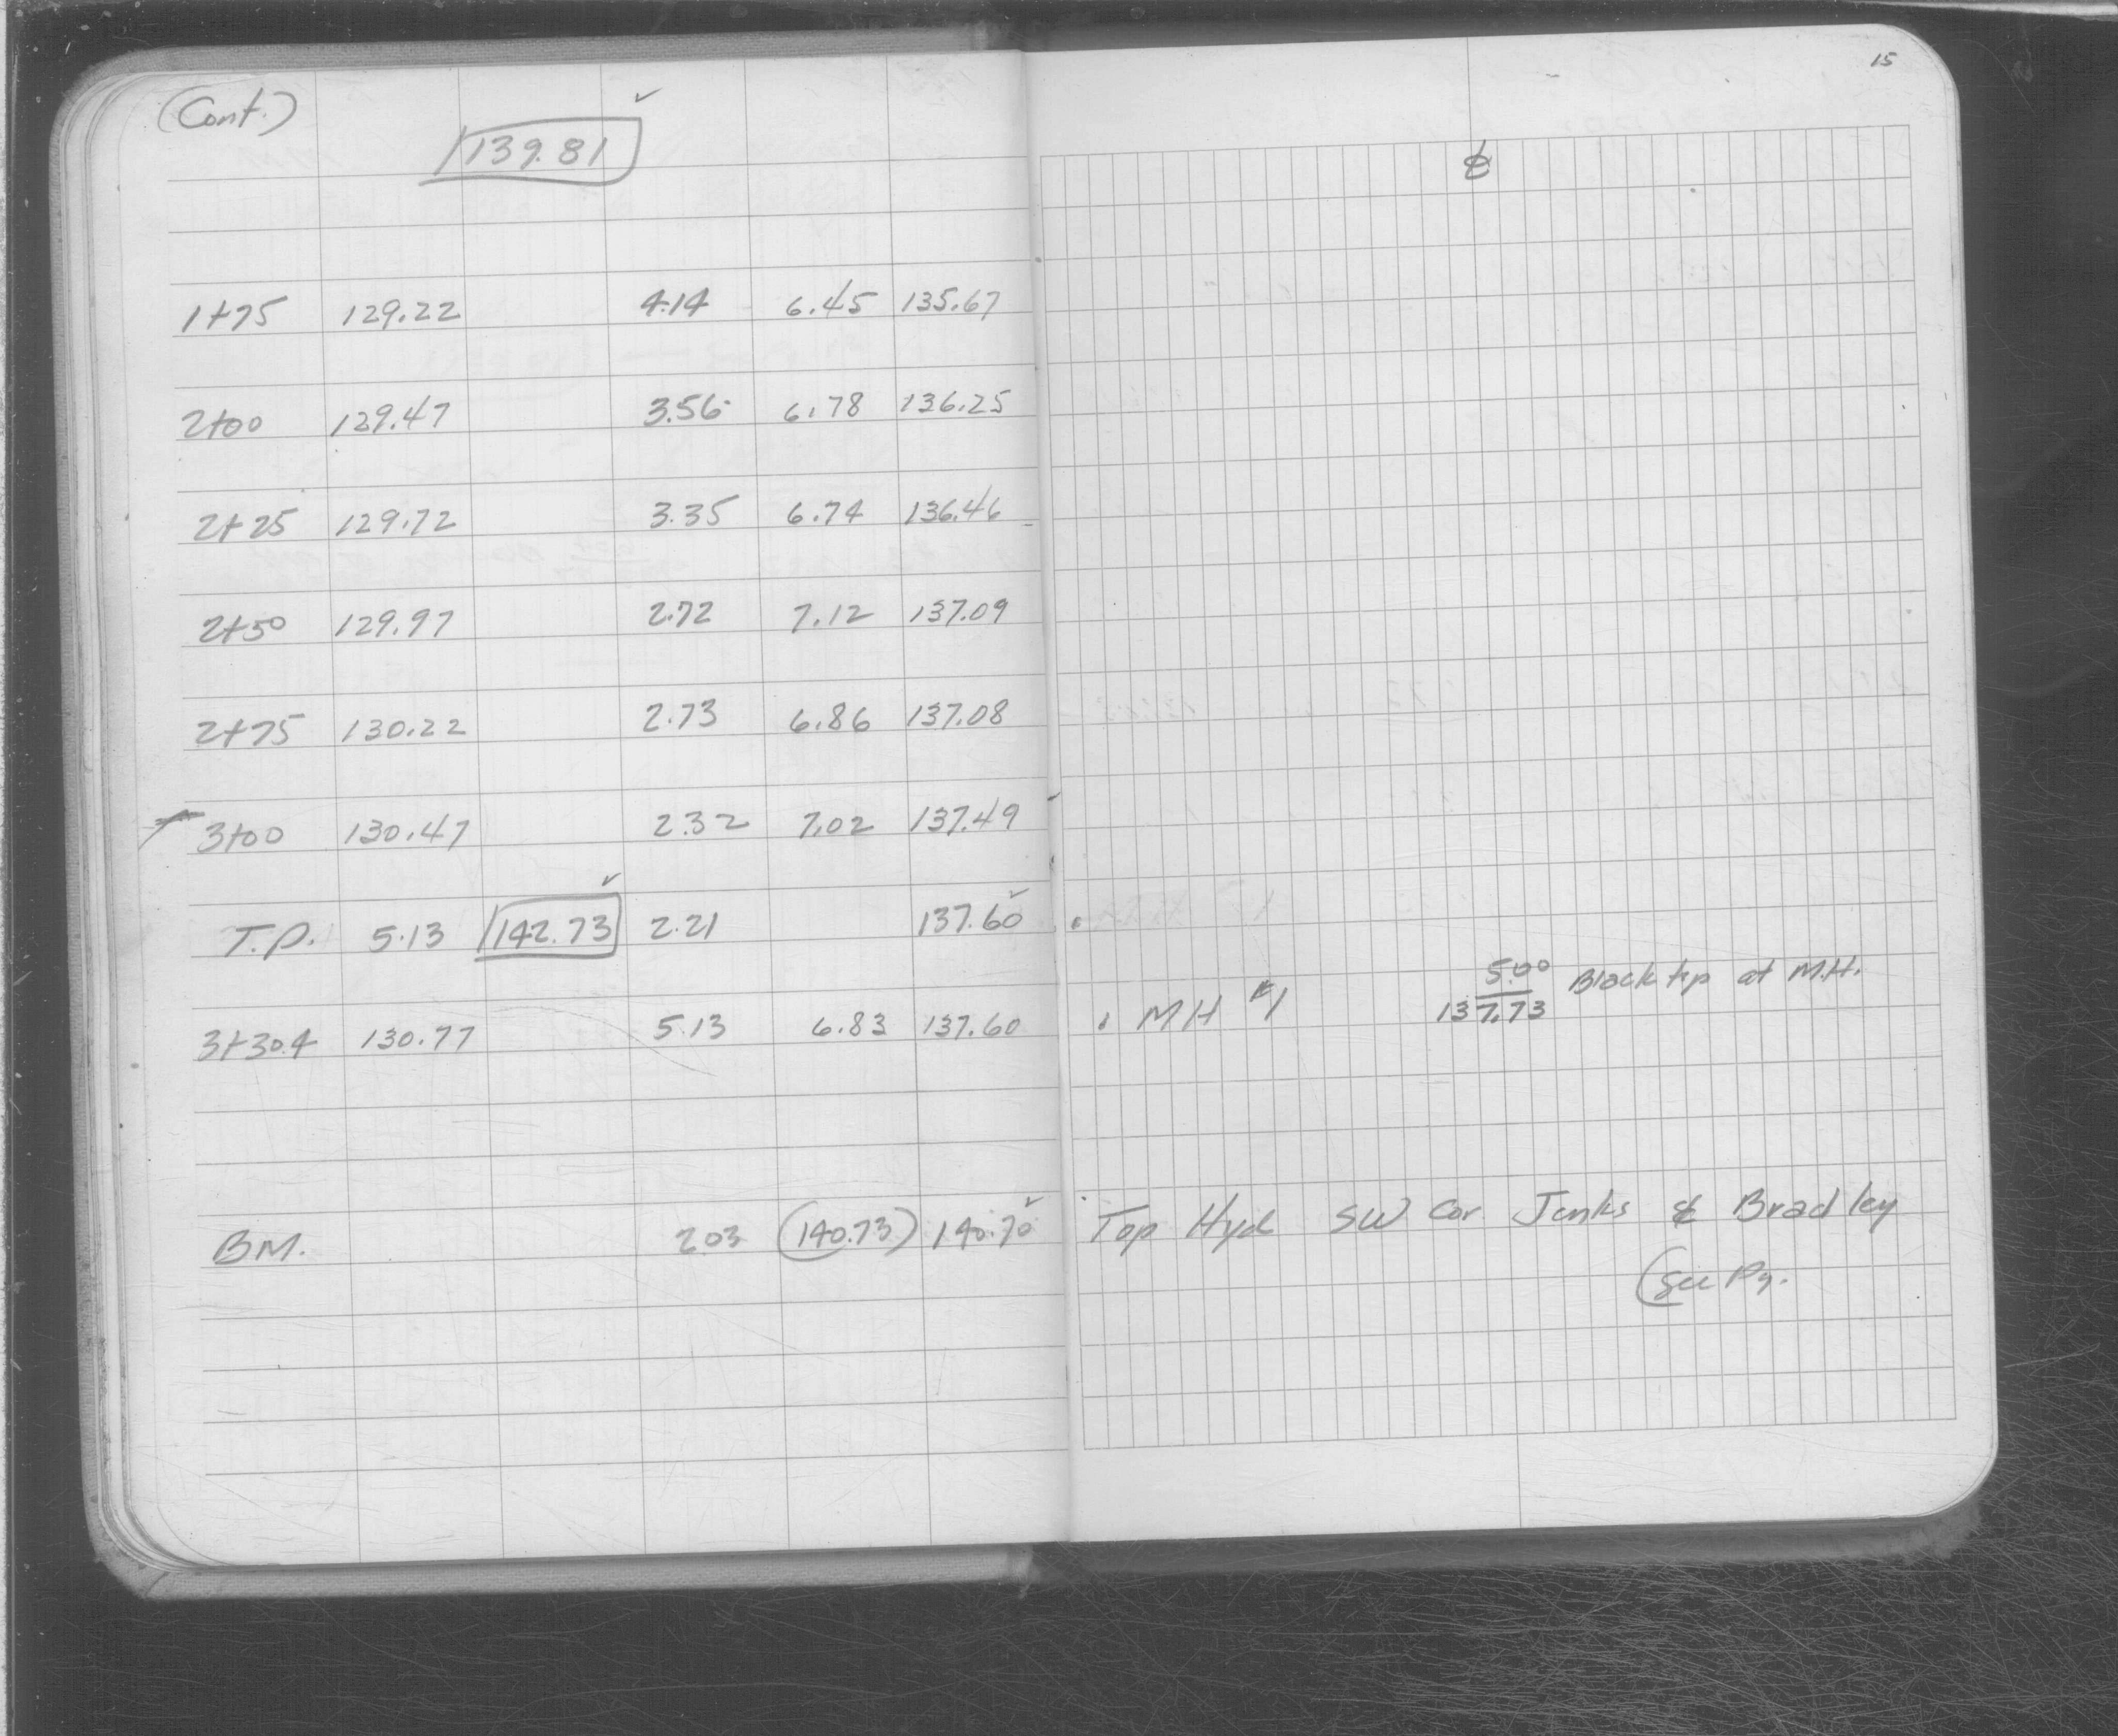 15
(Cont.)
139.81 ✓
℄
1+75 129.22 4.14 6.45 135.67
2+00 129.47 3.56 6.78 136.25
2+25 129.72 3.35 6.74 136.46
2+50 129.97 2.72 7.12 137.09
2+75 130.22 2.73 6.86 137.08
3+00 130.47 2.32 7.02 137.49
T.P. 5.13 142.73 ✓ 2.21 137.60 ✓
5.00 Blacktop at M.H.
137.73
3+30.4 130.77 5.13 6.83 137.60 MH #1
BM. 2.03 (140.73) 140.70 ✓ Top Hyd SW Cor Jenks & Bradley
(See Pg.